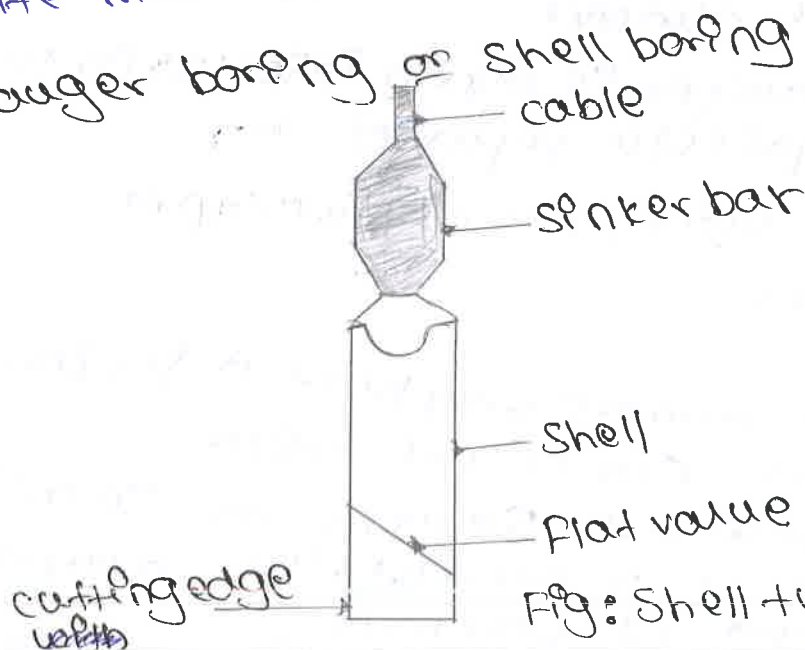 auger boring or shell boring
cable
sinker bar
Shell
Flat value
cutting edge
Fig: Shell